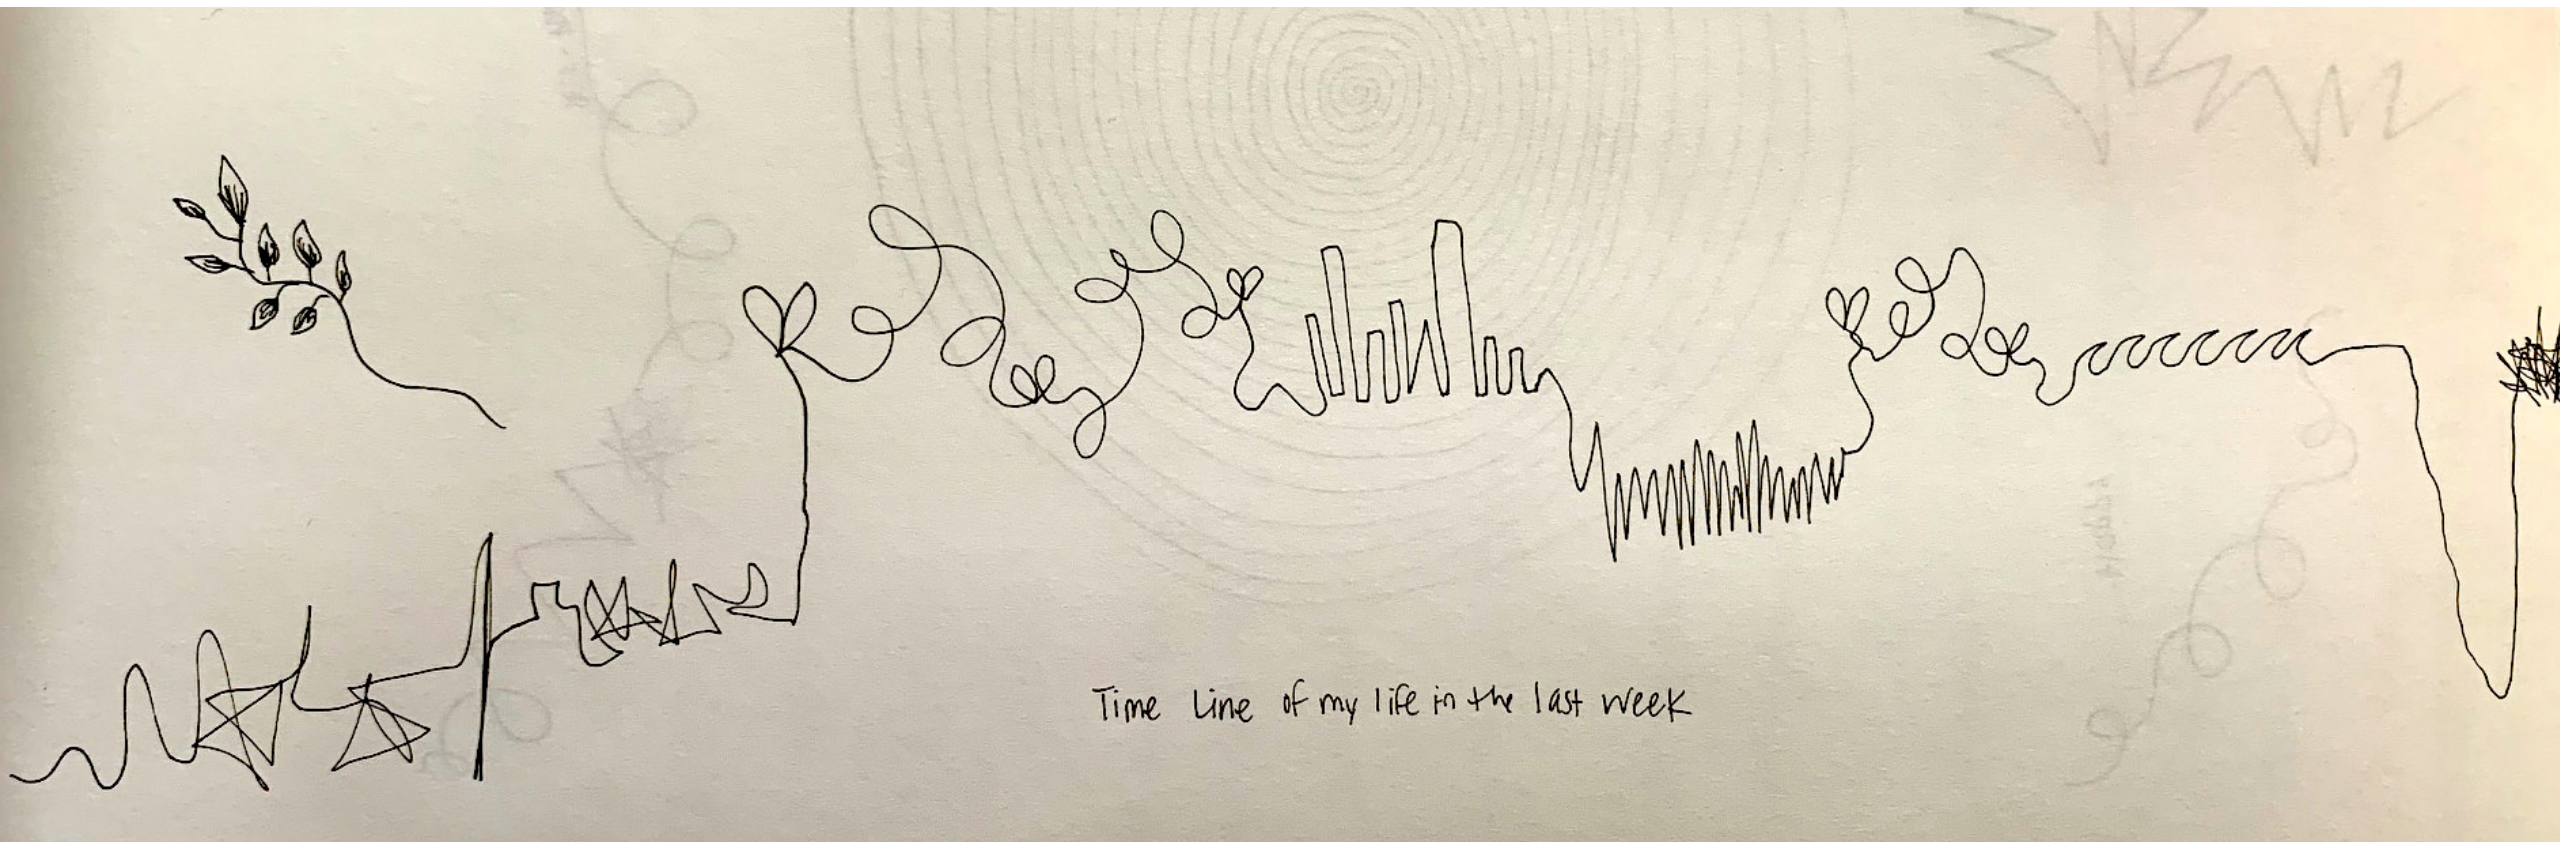 Time Line of my life in the last week